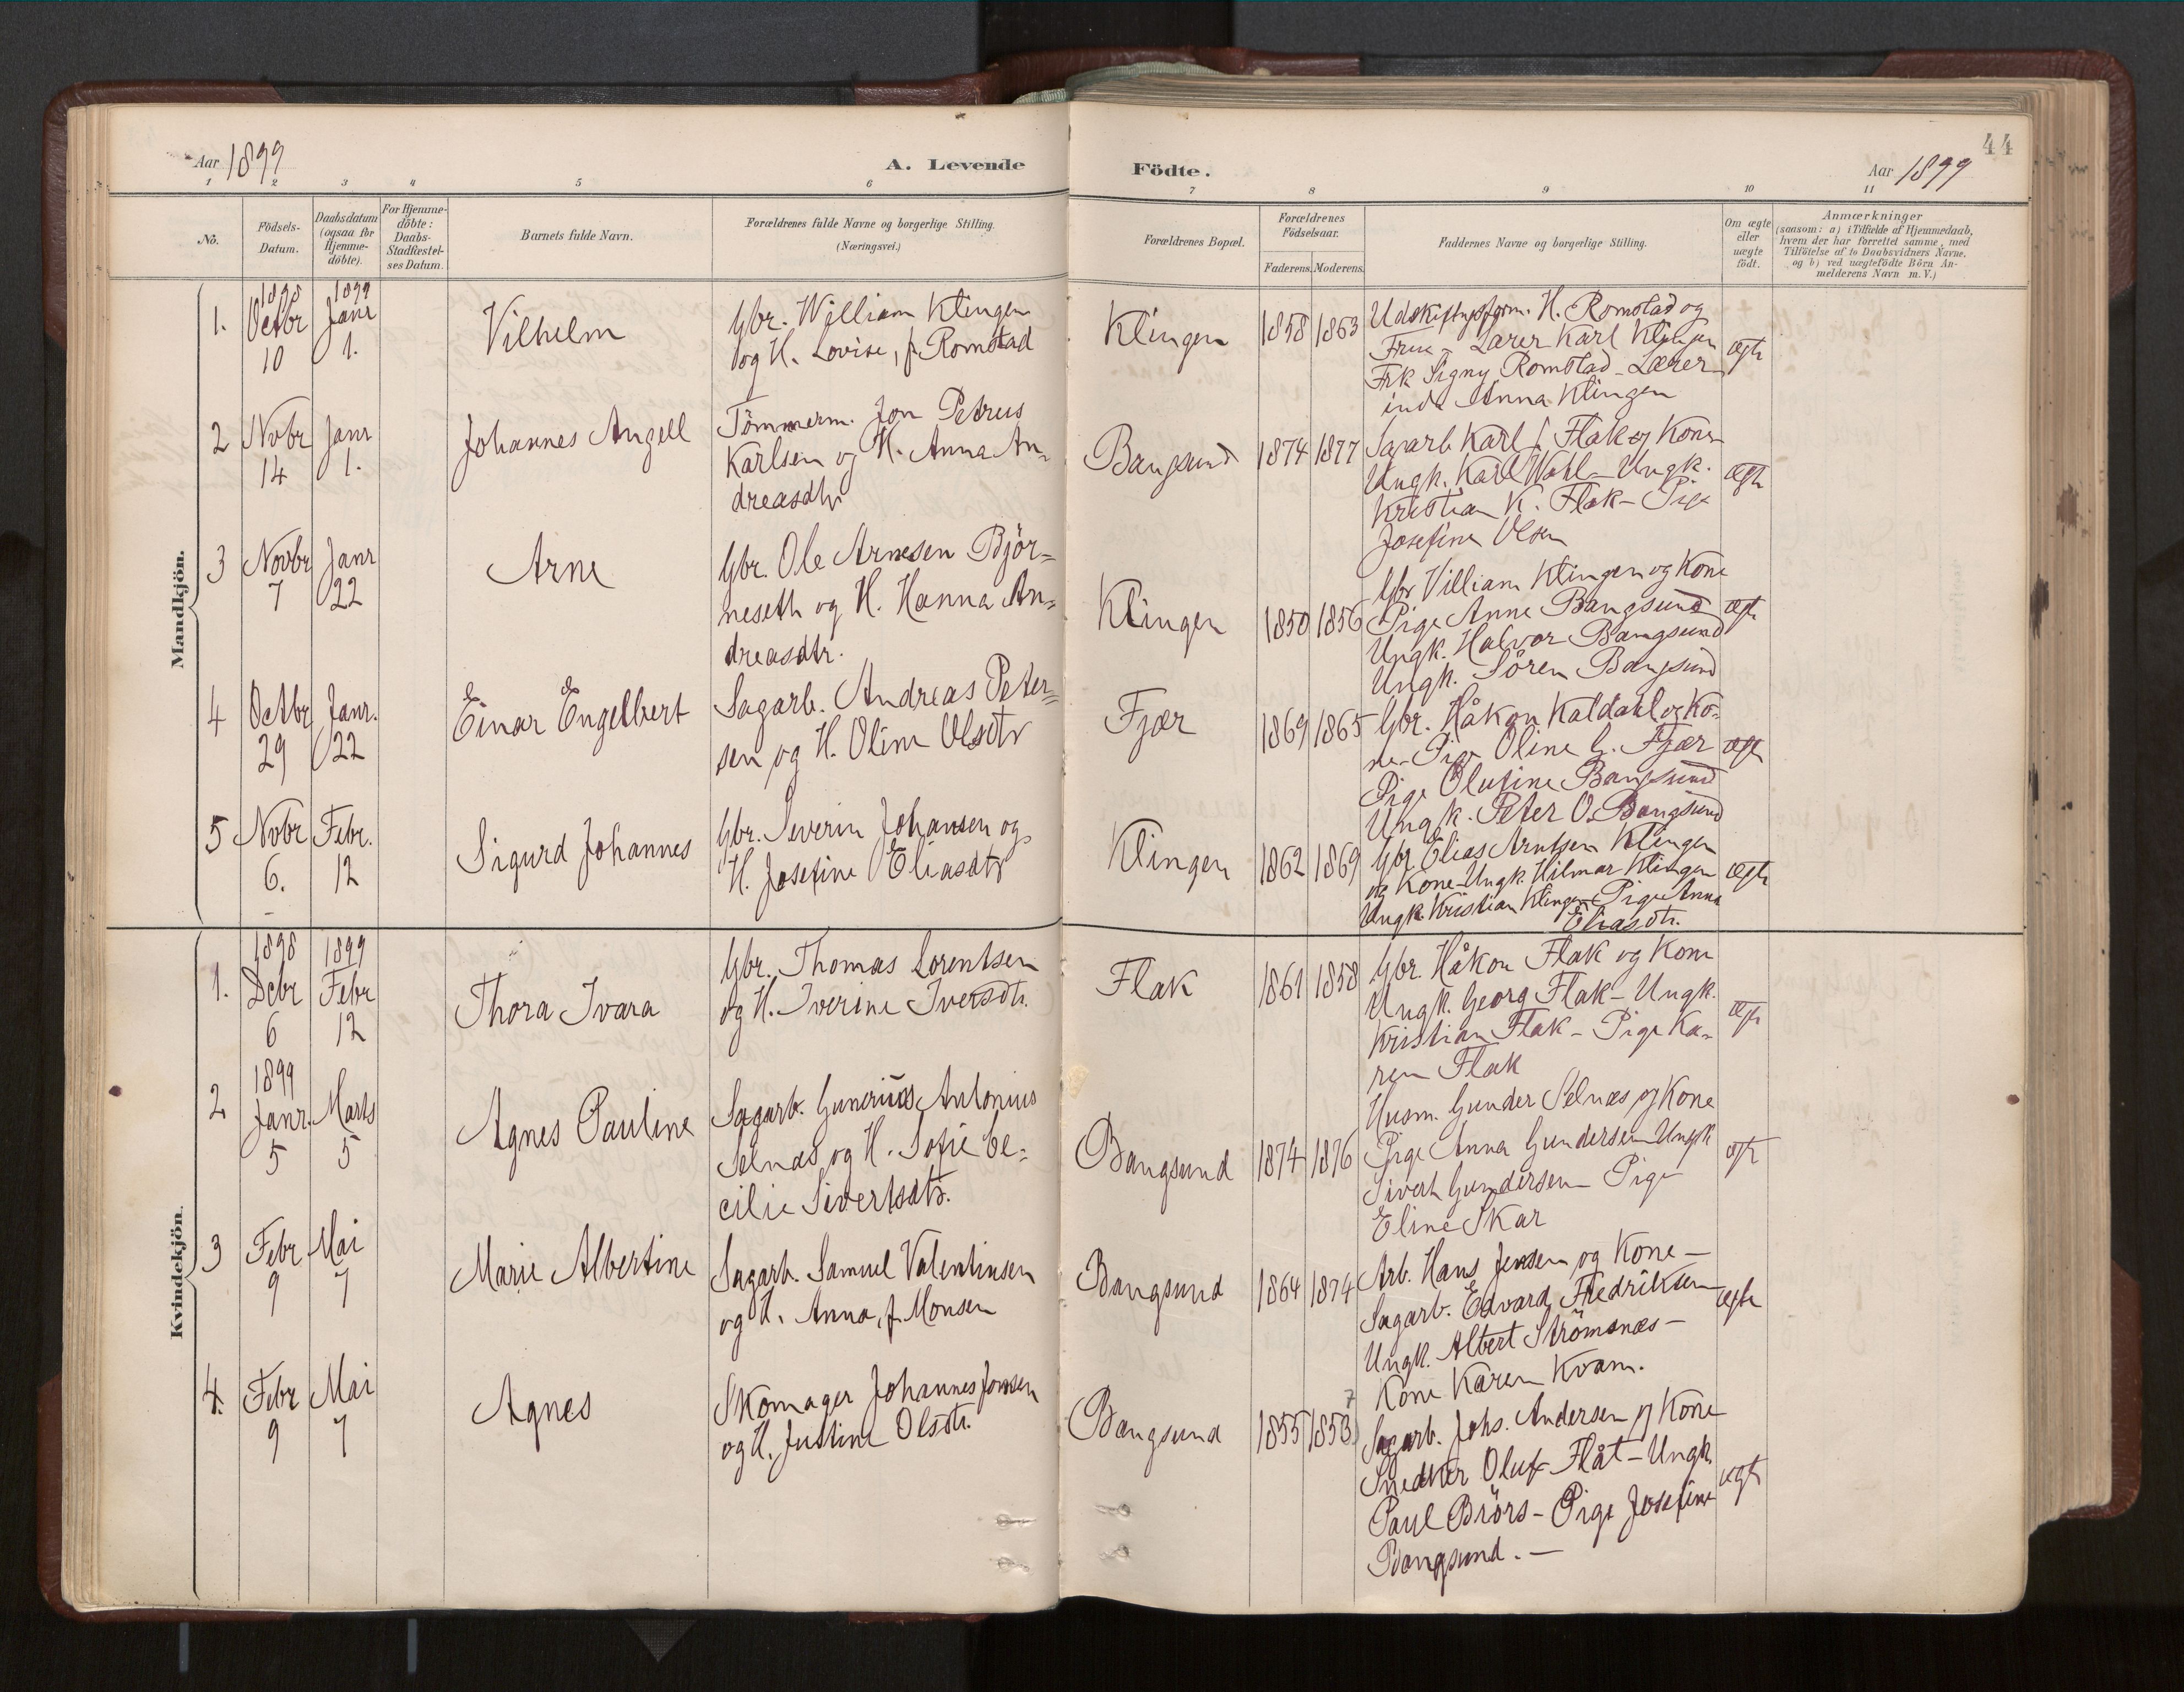 44
Aar 1899
A. Levende Födte.
Aar 1899
1 2 3 4 5 6 7 8 9 10 11
No.
Födsels-
Datum.
Daabsdatum
(ogsaa for
Hjemme-
döbte).
For Hjemme-
döbte:
Daabs-
Stadfæstel-
ses Datum.
Barnets fulde Navn.
Forældrenes fulde Navne og borgerlige Stilling.
(Næringsvei.)
Forældrenes Bopæl.
Forældrenes
Födselsaar.
Faderens. Moderens.
Faddernes Navne og borgerlige Stilling.
Om ægte
eller
uægte
födt.
Anmærkninger
(saasom: a) i Tilfælde af Hjemmedaab,
hvem der har forrettet samme, med
Tilföielse af to Daabsvidners Navne,
og b) ved uægtefödte Börn An-
melderens Navn m.V.)
Mandkjön.
1.
1898
Octbr
10
1899
Janr
1.
Vilhelm
Gbr. William Klingen
og H. Lovise, f. Romstad
Klingen
1858
1863
H. Romstad og
Frue - Lærer Karl Klingen
Frk Signy Romstad - Lærer-
inde Anna Klingen
ægte
2
Novbr
14
Janr
1.
Johannes Angell
Tömmerm. Jon Petrus
Karlsen og H. Anna An=
dreasdtr
Bangsund
1874
1877
Sagarb. Karl Flak og Kone
Ungk. Karl Wahl - Ungk.
Kristian K. Flak - Pige
Josefine Olsen
ægte
3
Novbr
7
Janr
22
Arne
Gbr. Ole Arnesen Björ=
neseth og H. Hanna An=
dreasdtr.
Klingen
1850
1856
Gbr Villiam Klingen og Kone
Pige Anne Bangsund
Ungk. Halvor Bangsund
Ungk. Sören Bangsund
ægte
4
Octbr
29
Janr.
22
Einar Engelbert
Sagarb. Andreas Peter=
sen og H. Oline Olsdtr
Fjær
1869
1865
Gbr. Håkon Kaldahl og Ko-
ne - Pige Oline G. Fjær
Pige Olufine Bangsund
Ungk. Peter O. Bangsund
ægte
5
Novbr
6.
Febr.
12
Sigurd Johannes
Gbr. Severin Johansen og
H. Josefine Eliasdtr
Klingen
1862
1869
Gbr Elias Arntsen Klingen
og Kone - Ungk. Hilmar Klingen
Ungk. Kristian Klingen - Pige Anna
Eliasdtr.
ægte
Kvindekjön.
1.
1898
Debr
6
1899
Febr
12
Thora Ivara
Gbr. Thomas Lorentsen
og H. Iverine Iversdtr.
Flak
1861
1858
Gbr. Håkon Flak og Kone
Ungk. Georg Flak - Ungk.
Kristian Flak - Pige Ka-
ren Flak
ægte
2
1899
Janr.
5
Marts
5
Agnes Pauline
Sagarb. Gunerius Antonius
Selnæs og H. Sofie Ce=
cilie Sivertsdtr.
Bangsund
1874
1876
Husm. Gunder Selnæs og Kone
Pige Anna Gundersen - Ungk
Sivert Gundersen - Pige
Eline Skar
ægte
3
Febr
9
Mai
7
Marie Albertine
Sagarb. Samuel Valentinsen
og H. Anna, f. Monsen
Bangsund
1864
1874
Arb. Hans Jensen og Kone -
Sagarb. Edvard Fredriksen
Ungk. Albert Strömsnæs -
Kone Karen Kvam.
ægte
4.
Febr
9
Mai
7
Agnes
Skomager Johannes Jonsen
og H. Justine Olsdtr.
Bangsund
1855
1853
7
Sagarb. Johs. Andersen og Kone
Snedker Oluf Flåt - Ungk
Paul Brörs - Pige Josefine
Bangsund. -
ægte